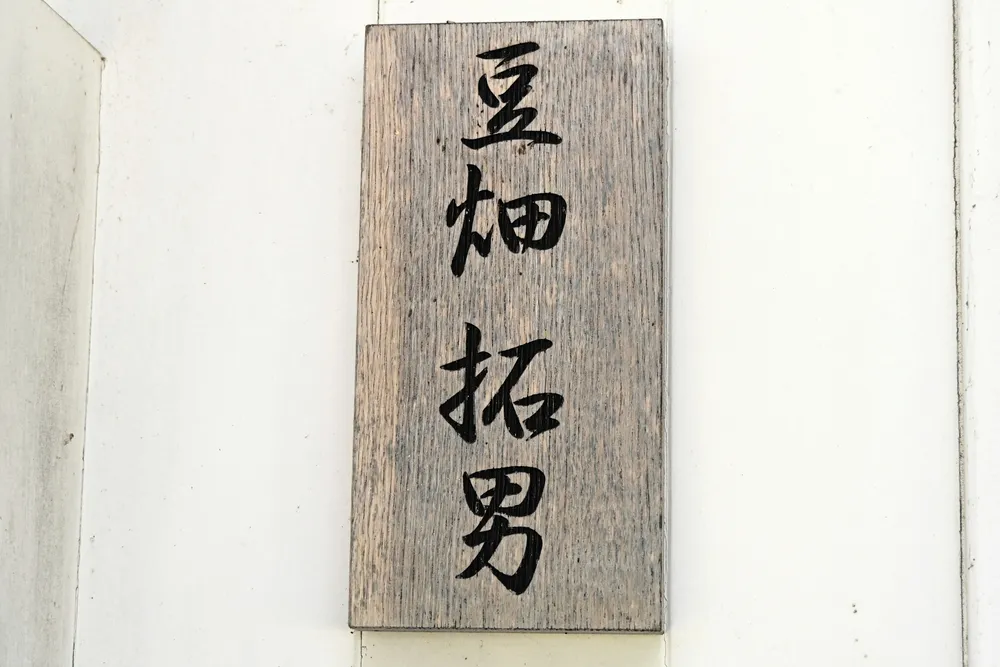 豆畑 拓男